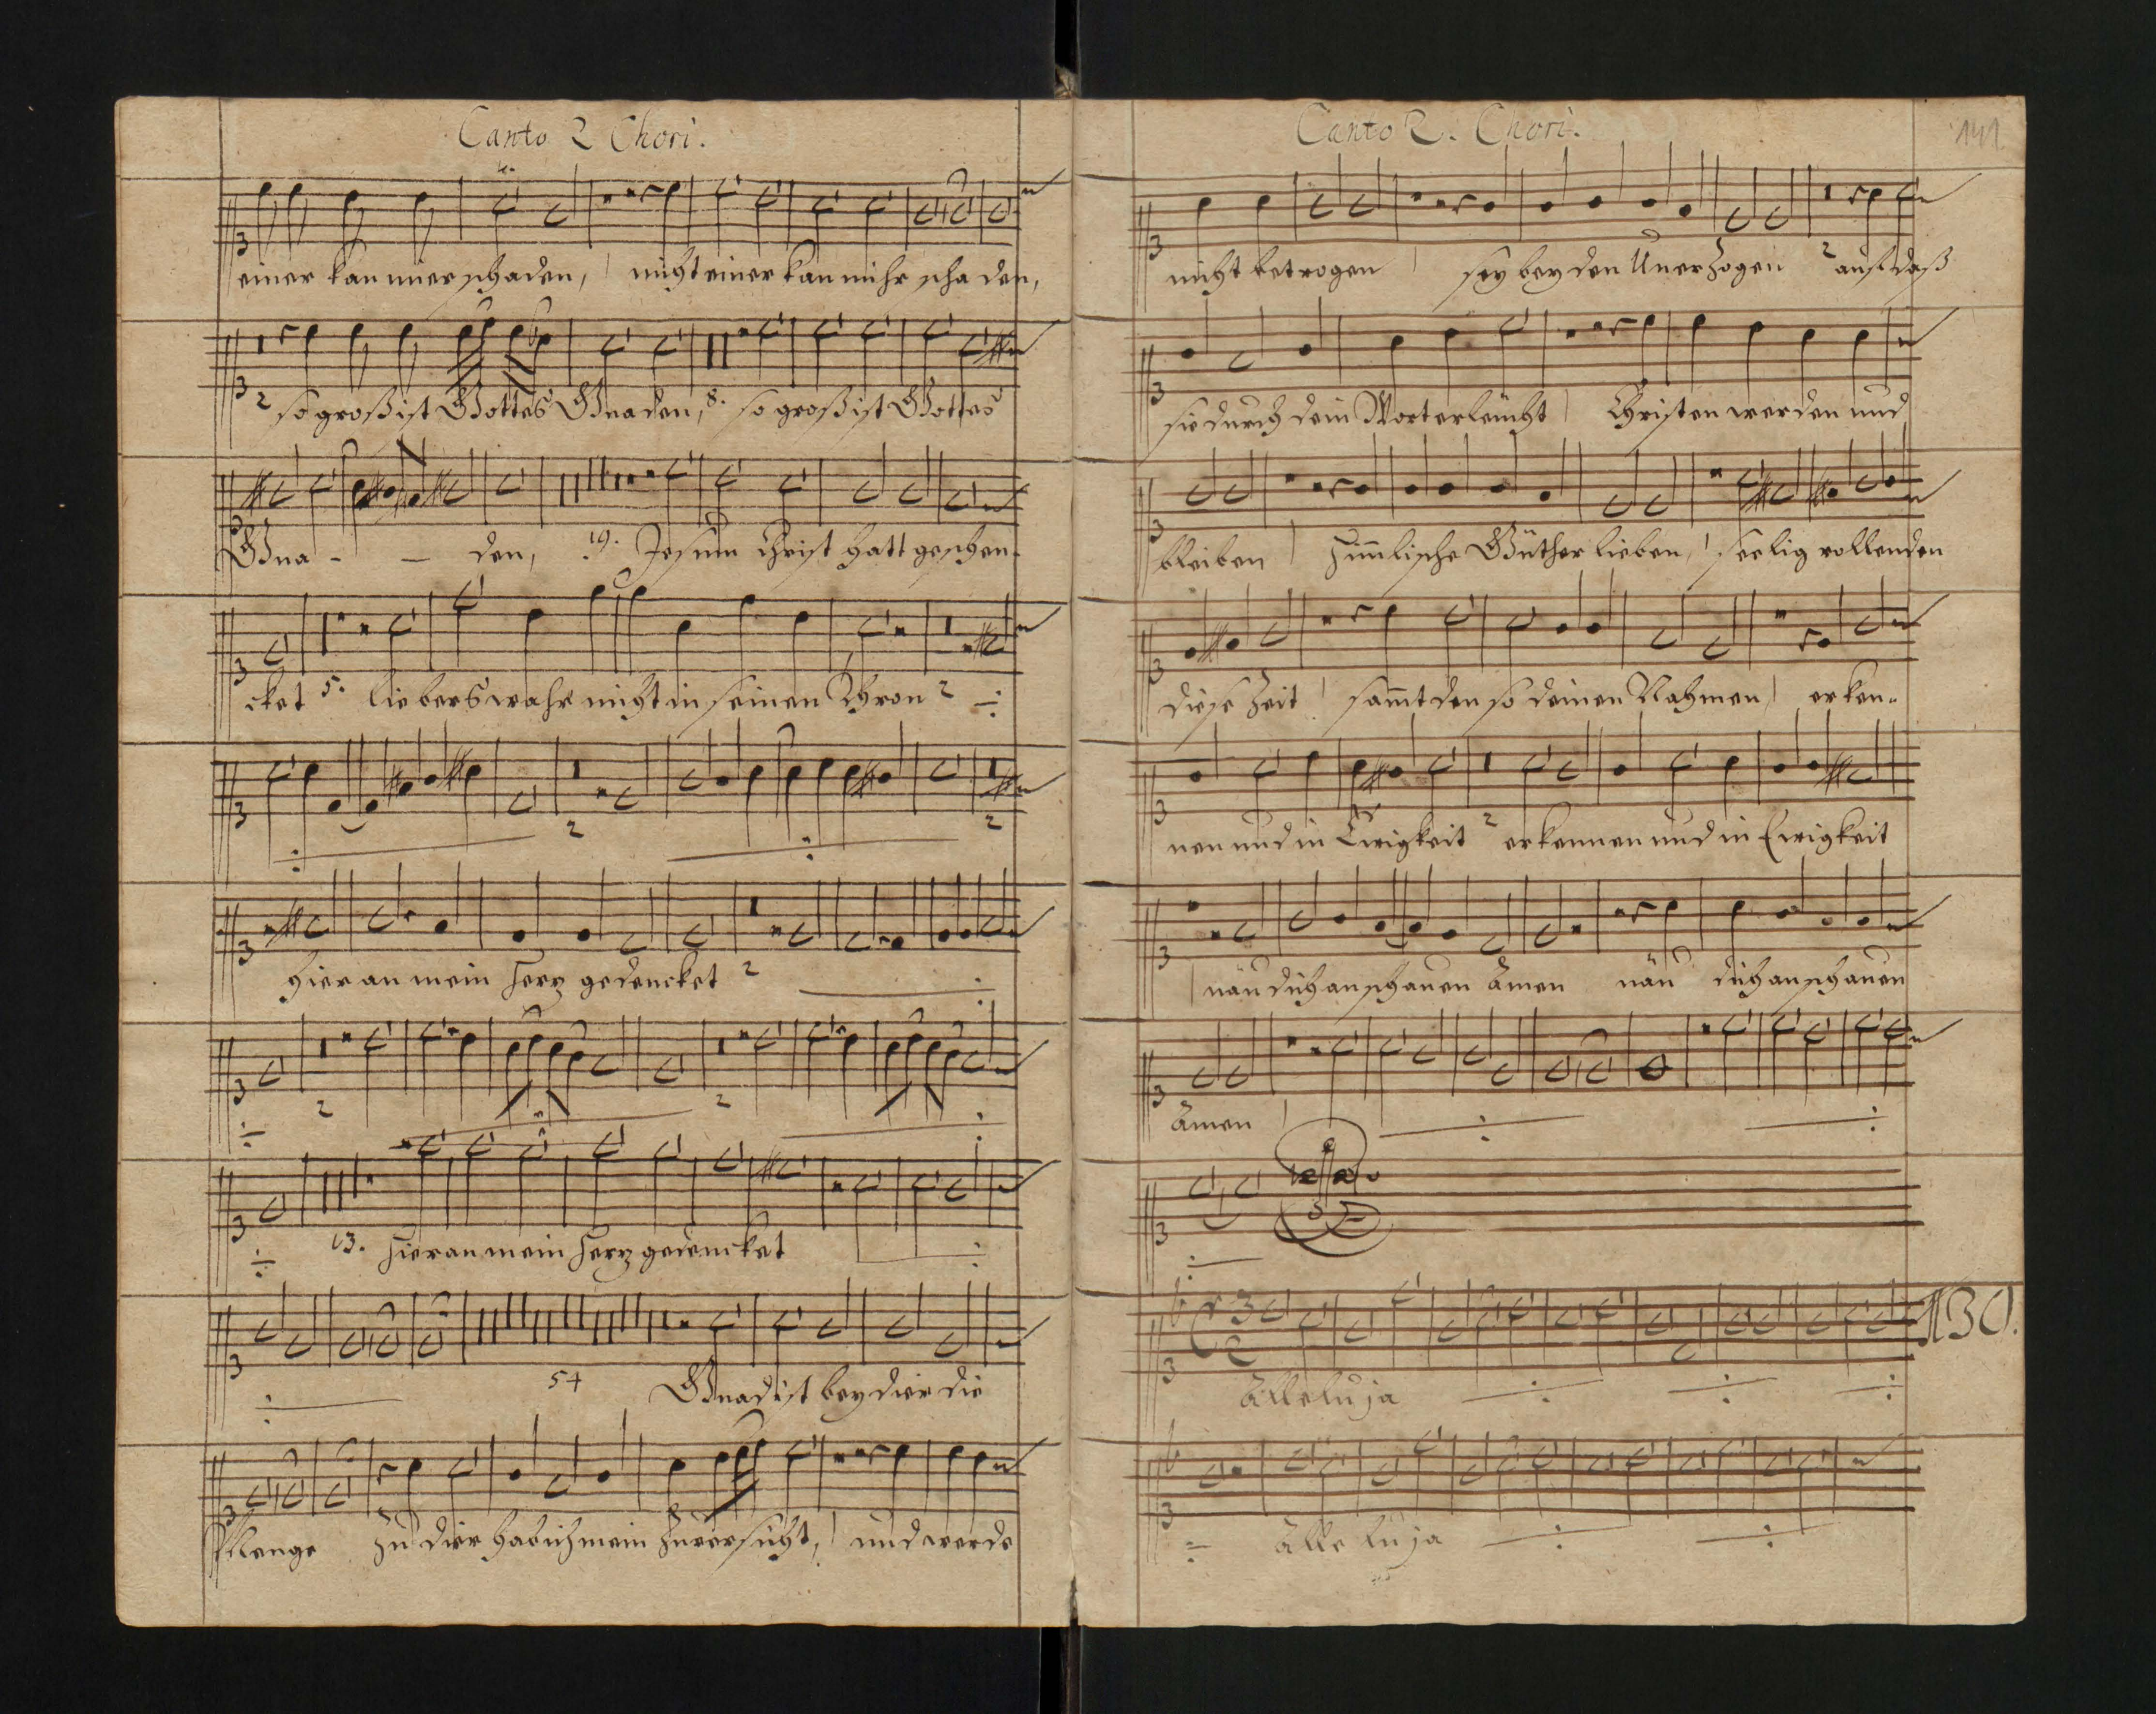 Canto 2 Chori.
einer kan mier schaden, nicht einer kan mihr schaden,
2 so groß ist Gottes Gnaden, 8. so groß ist Gottes
Gna - - den, 19. Jesum Christ hatt geschen-
cket 5. liebers wahr nicht in seinen Thron 2
2 2
hier an mein Herz gedencket 2
2 2
13. Hier an mein Herz gedencket
54 Gnad ist bey dier die
Menge zu dier hab ich mein Zuversicht, und werde
Canto 2. Chori. 141
nicht betrogen sey bey den Unerzogen 2 auf daß
sie durch dein Wort erleucht Christen werden und
bleiben himlische Güther lieben, seelig vollenden
diese Zeit samt den so deinen Nahmen erken-
nen und in Ewigkeit 2 erkennen und in Ewigkeit
näu dich anschauen Amen näu dich anschauen
Amen
130.
Alleluja
Alleluja